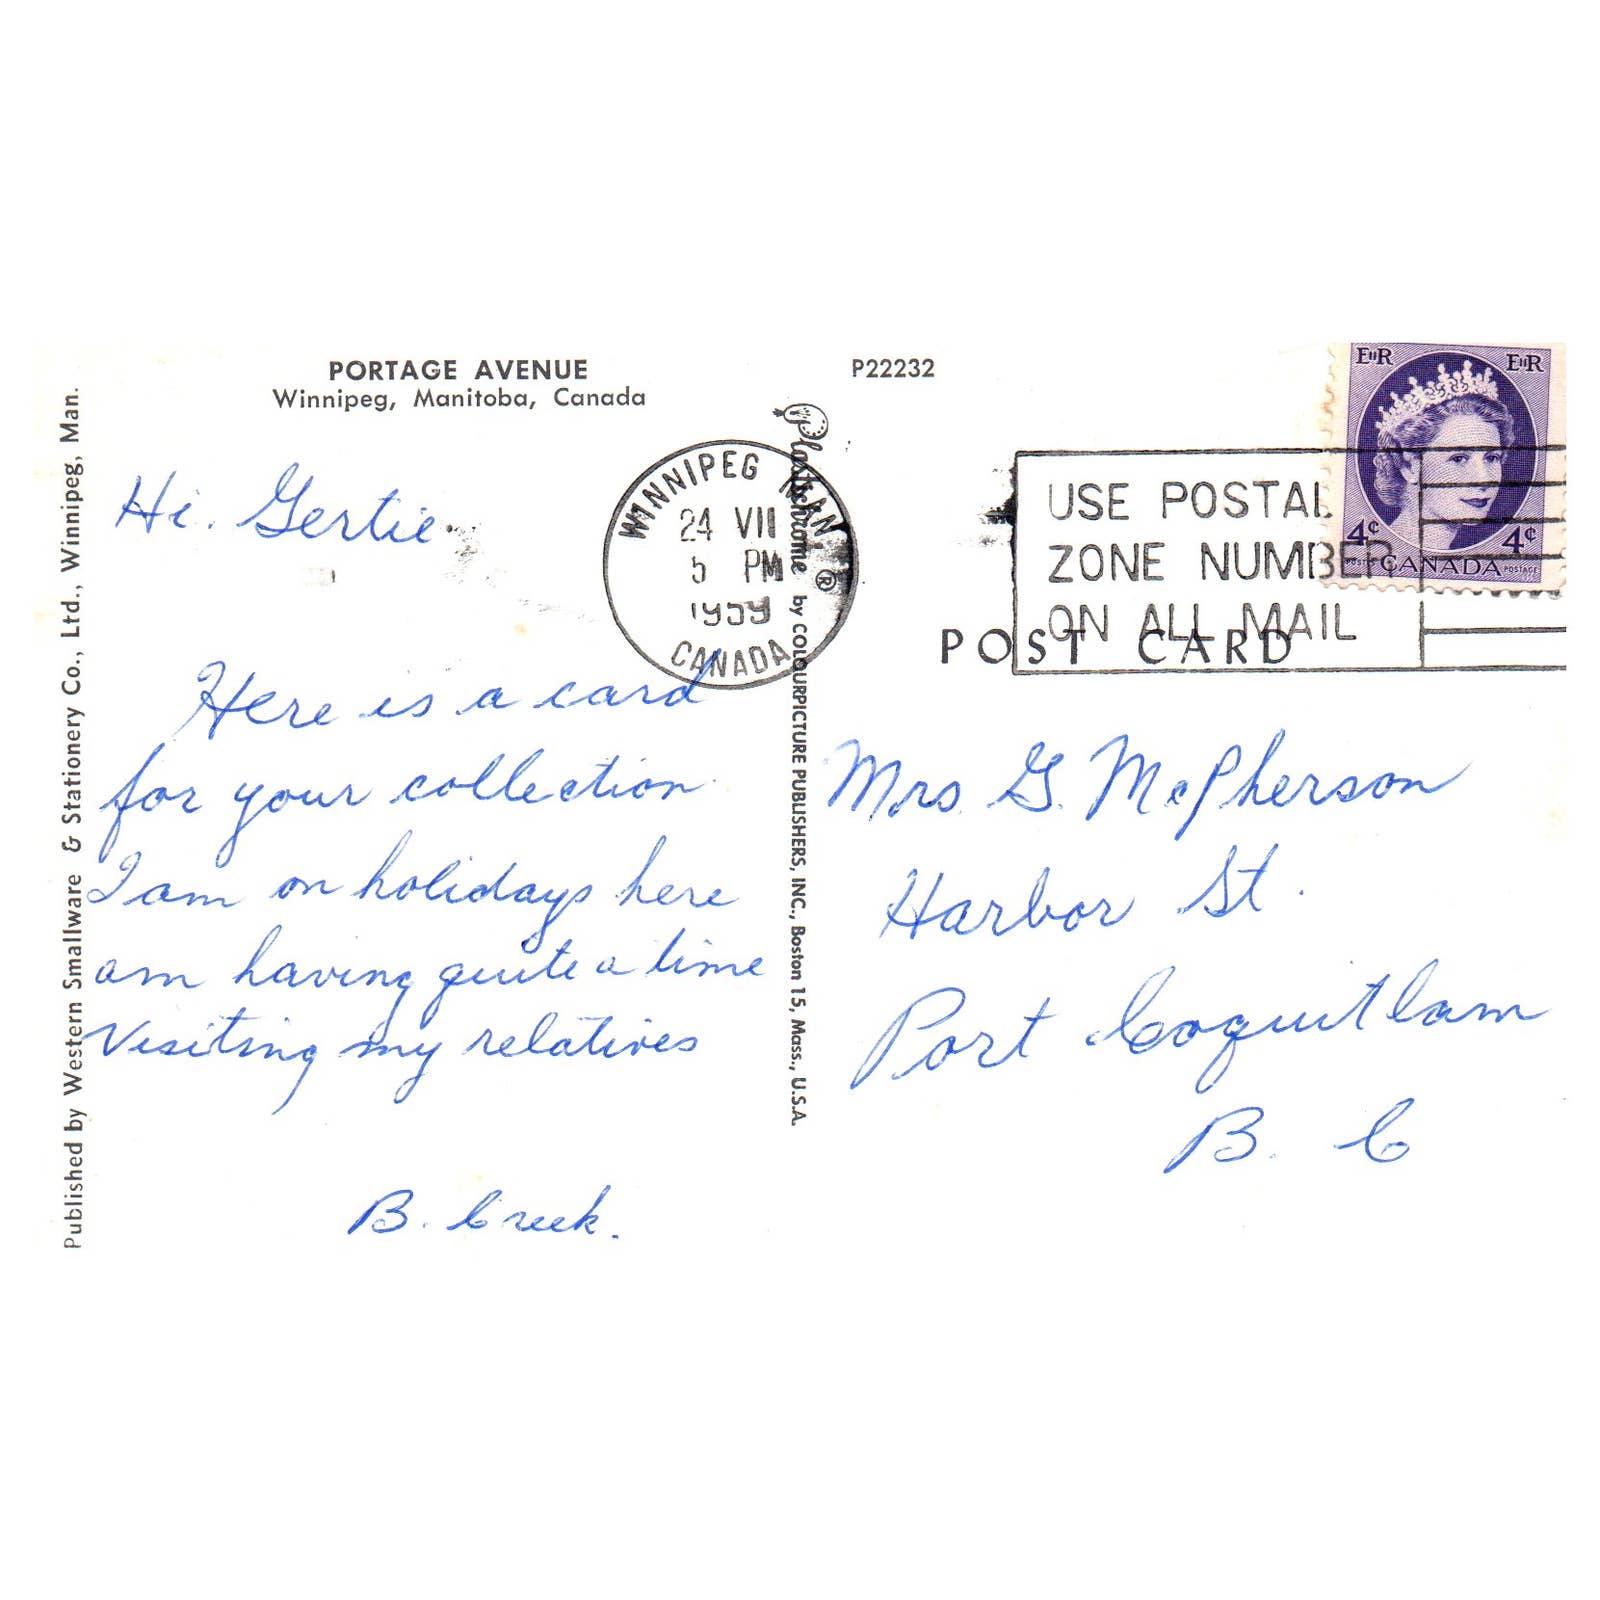 PORTAGE AVENUE
Winnipeg, Manitoba, Canada
P22232
Published by Western Smallware & Stationery Co., Ltd., Winnipeg, Man.
Hi. Gertie.
Here is a card
for your collection
I am on holidays here
am having quite a time
Visiting my relatives
B. Creek.
WINNIPEG MAN
24 VII
5 PM
1959
CANADA
Plastichrome ® by COLOURPICTURE PUBLISHERS, INC., Boston 15, Mass., U.S.A.
USE POSTAL
ZONE NUMBER
ON ALL MAIL
EIIR EIIR
4¢ 4¢
POSTES CANADA POSTAGE
POST CARD
Mrs. G. McPherson
Harbor St.
Port Coquitlam
B. C